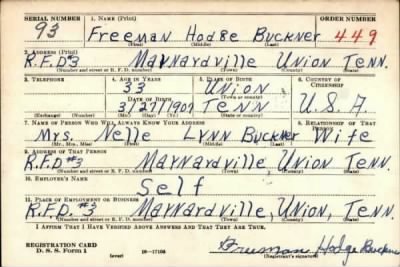 SERIAL NUMBER 1. NAME (Print) ORDER NUMBER
93 Freeman Hodge Buckner 449
(First) (Middle) (Last)
2. ADDRESS (Print)
R.F.D#3 Maynardville Union Tenn.
(Number and street or R. F. D. number) (Town) (County) (State)
3. TELEPHONE 4. AGE IN YEARS 5. PLACE OF BIRTH 6. COUNTRY OF CITIZENSHIP
33 Union
DATE OF BIRTH (Town or county)
3/27/1907 Tenn U.S.A.
(Exchange) (Number) (Mo.) (Day) (Yr.) (State or country)
7. NAME OF PERSON WHO WILL ALWAYS KNOW YOUR ADDRESS 8. RELATIONSHIP OF THAT PERSON
Mrs. Nelle Lynn Buckner Wife
(Mr., Mrs., Miss) (First) (Middle) (Last)
9. ADDRESS OF THAT PERSON
R.F.D #3 Maynardville, Union Tenn.
(Number and street or R. F. D. number) (Town) (County) (State)
10. EMPLOYER'S NAME
Self
11. PLACE OF EMPLOYMENT OR BUSINESS
R.F.D. #3 Maynardville, Union, Tenn.
(Number and street or R. F. D. number) (Town) (County) (State)
I AFFIRM THAT I HAVE VERIFIED ABOVE ANSWERS AND THAT THEY ARE TRUE.
REGISTRATION CARD
D. S. S. Form 1 (over) 16—17105 Freeman Hodge Buckner
(Registrant's signature)